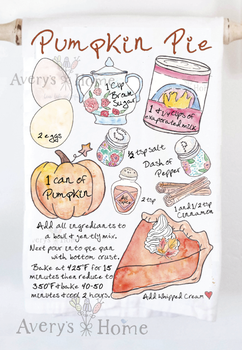 Pumpkin Pie
Avery's Home
1 Cup
Brown
Sugar
2 eggs
evaporated milk
1/2 tsp salt
Dash of
Pepper
S
P
1 can of
Pumpkin
2 tsp
1 and 1/2 tsp
Cinnamon
Add all ingredients to
a bowl & gently mix.
Next pour into pie pan
with bottom crust.
Bake at 425°F for 15
minutes then reduce to
350°F & bake 40-50
minutes & cool 2 hours.
Add Whipped Cream
Avery's Home